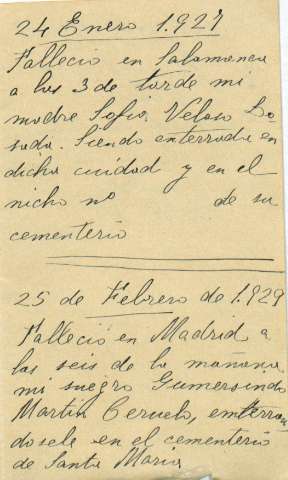 24 Enero 1.927
Fallecio en Salamanca
a las 3 de tarde mi
madre Sofia Veloso Lo-
sada. Siendo enterrada en
dicha ciudad y en el
nicho nº de su
cementerio
25 de Febrero de 1.929
Falleció en Madrid a
las seis de la mañana
mi suegro Gumersindo
Martin Ceruelo, enterran
dosele en el cementerio
de Santa Maria